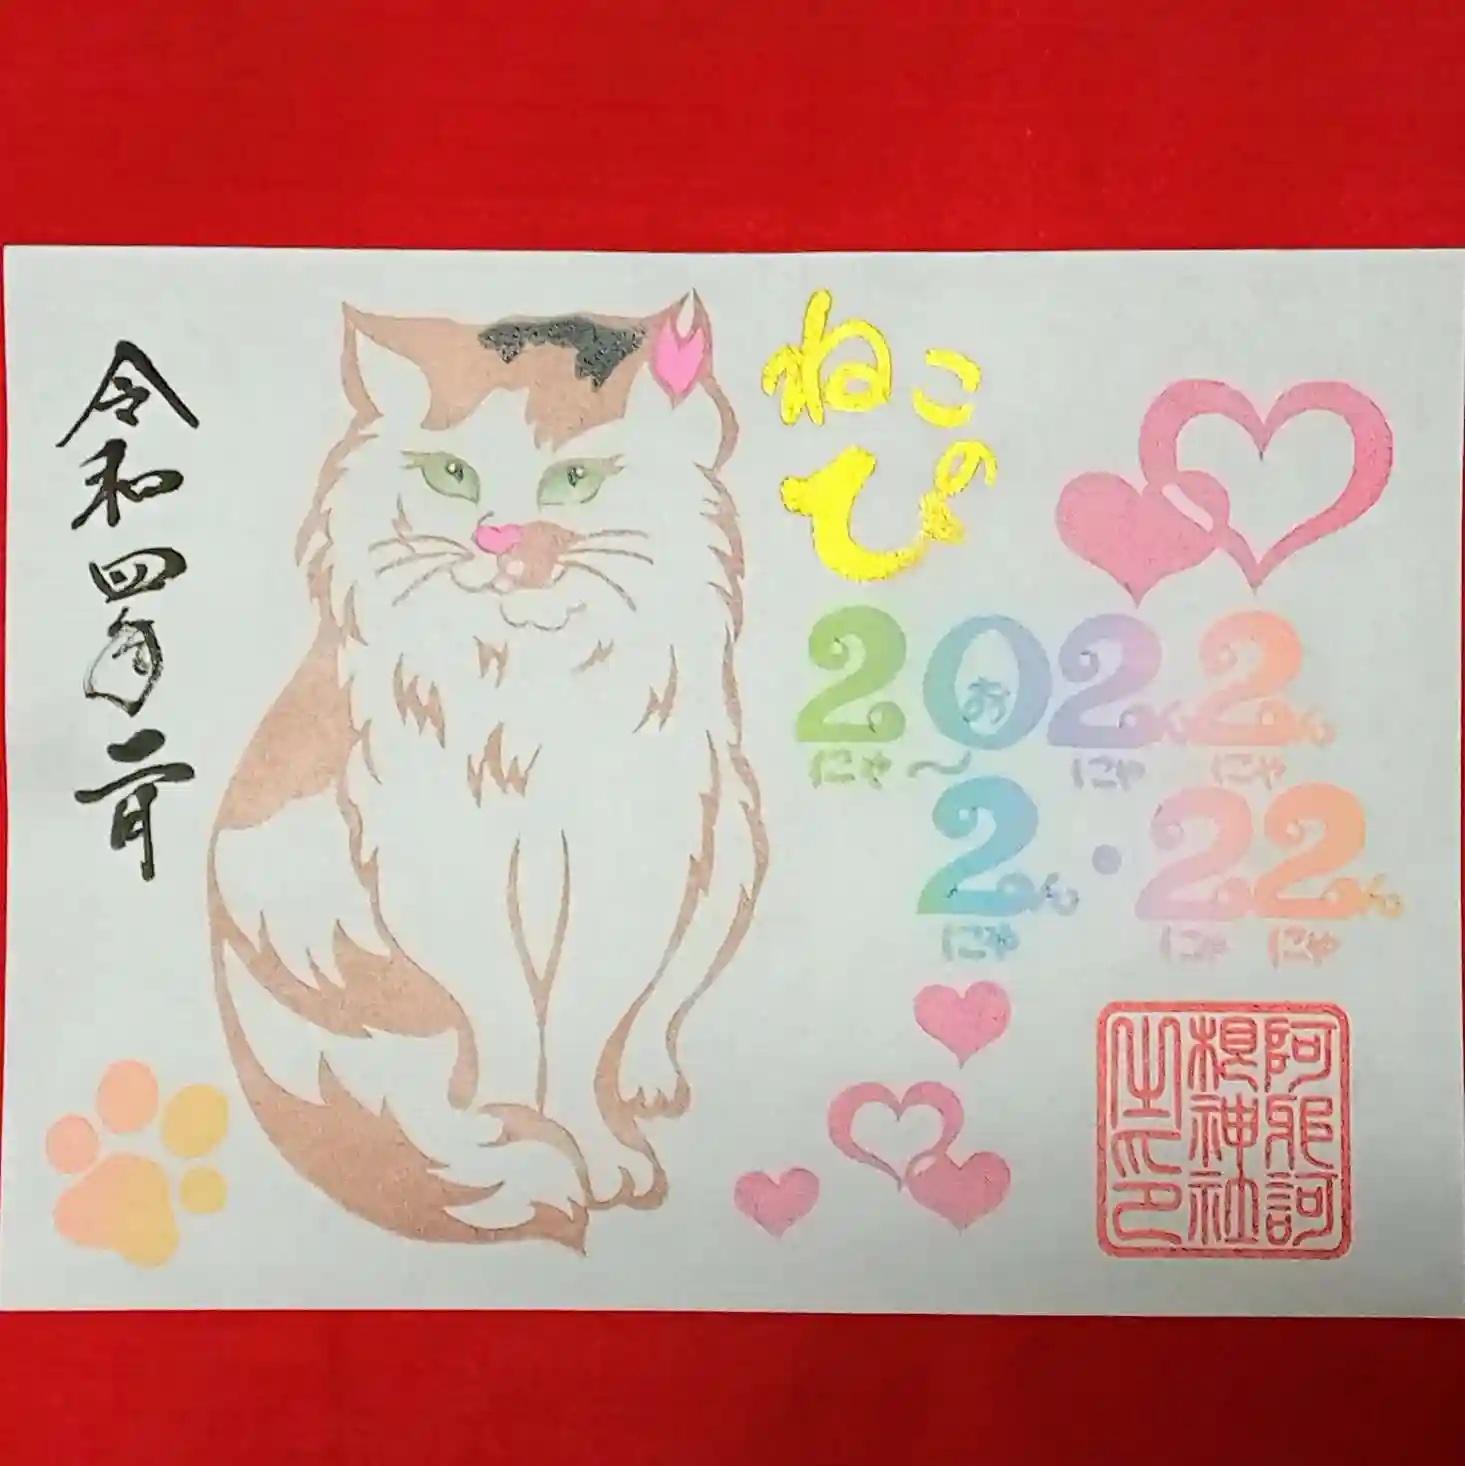 令和四年二月
ねこ
のひ
2022
お
ん ん
にゃ〜 にゃ にゃ
2ん・22ん
にゃ にゃ にゃ
阿邪訶
根神社
之印